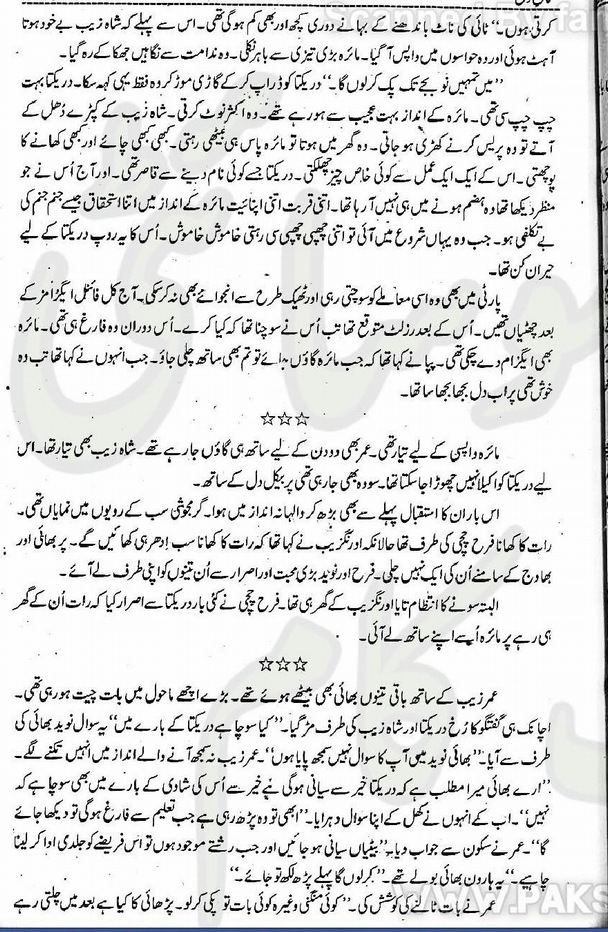 کرتی ہوں۔‘‘ ٹائی کی ناٹ باندھنے کے بہانے دوری کچھ اور بھی کم ہوگئی تھی۔ اس سے پہلے کہ شاہ زیب بے خود ہوتا
آہٹ ہوئی اور وہ حواسوں میں واپس آ گیا۔ مائرہ بڑی تیزی سے باہر نکلی۔ وہ ندامت سے نگاہیں جھکا کے رہ گیا۔
’’میں تمہیں نو بجے تک پک کرلوں گا۔‘‘ دریکتا کو ڈراپ کر کے گاڑی موڑ کر وہ فقط یہی کہہ سکا۔ دریکتا بہت
چپ چپ سی تھی۔ مائرہ کے انداز بہت عجیب سے ہورہے تھے۔ وہ اکثر نوٹ کرتی۔ شاہ زیب کے کپڑے دُھل کے
آتے تو وہ پریس کرنے کھڑی ہو جاتی۔ وہ گھر میں ہوتا تو مائرہ پاس ہی بیٹھی رہتی۔ کبھی کبھی چائے اور کبھی کھانے کا
پوچھتی۔ اس کے ایک ایک عمل سے کوئی خاص چیز جھلکتی۔ دریکتا جسے کوئی نام دینے سے قاصر تھی۔ اور آج اُس نے جو
منظر دیکھا تھا وہ ہضم ہونے میں ہی نہیں آ رہا تھا۔ اتنی قربت اتنی اپنائیت مائرہ کے انداز میں اتنا استحقاق جیسے جنم جنم کی
بے تکلفی ہو۔ جب وہ یہاں شروع میں آئی تو اتنی چھپی چھپی سی رہتی خاموش خاموش۔ اُس کا یہ روپ دریکتا کے لیے
حیران کن تھا۔
پارٹی میں بھی وہ اسی معاملے کو سوچتی رہی اور ٹھیک طرح سے انجوائے بھی نہ کرسکی۔ آج کل فائنل ایگزامز کے
بعد چھٹیاں تھیں۔ اُس کے بعد رزلٹ متوقع تھا تب اُس نے سوچنا تھا کہ کیا کرے۔ اُس دوران وہ فارغ ہی تھی۔ مائرہ
بھی ایگزام دے چکی تھی۔ پپا نے کہا تھا کہ جب مائرہ گاؤں جائے تو تم بھی ساتھ چلی جاؤ۔ جب انہوں نے کہا تھا تب وہ
خوش تھی پر اب دل بجھا بجھا سا تھا۔
☆☆☆
مائرہ واپسی کے لیے تیار تھی۔ عمر بھی دو دن کے لیے ساتھ ہی گاؤں جا رہے تھے۔ شاہ زیب بھی تیار تھا۔ اس
لیے دریکتا کو اکیلا نہیں چھوڑا جا سکتا تھا۔ سو وہ بھی جا رہی تھی پر بیکل دل کے ساتھ۔
اس بار ان کا استقبال پہلے سے بھی بڑھ کر والہانہ انداز میں ہوا۔ گرمجوشی سب کے رویوں میں نمایاں تھی۔
رات کا کھانا فرح چچی کی طرف تھا حالانکہ اورنگزیب نے کہا تھا کہ رات کا کھانا سب اِدھر ہی کھائیں گے۔ پر بھائی اور
بھاوج کے سامنے اُن کی ایک نہیں چلی۔ فرح اور نوید بڑی محبت اور اصرار سے اُن تینوں کو اپنی طرف لے آئے۔
البتہ سونے کا انتظام تایا اورنگزیب کے گھر ہی تھا۔ فرح چچی نے کئی بار دریکتا سے اصرار کیا کہ رات اُن کے گھر
ہی رہے پر مائرہ اُسے اپنے ساتھ لے آئی۔
☆☆☆
عمر زیب کے ساتھ باقی تینوں بھائی بھی بیٹھے ہوئے تھے۔ بڑے اچھے ماحول میں بات چیت ہو رہی تھی۔
اچانک ہی گفتگو کا رُخ دریکتا اور شاہ زیب کی طرف مڑ گیا۔ ’’کیا سوچا ہے دریکتا کے بارے میں‘‘ یہ سوال نوید بھائی کی
طرف سے آیا: ’’بھائی نوید میں آپ کا سوال نہیں سمجھ پایا ہوں‘‘۔ عمر زیب نہ سمجھ آنے والے انداز میں انہیں تکنے لگے۔
’’ارے بھائی میرا مطلب ہے کہ دریکتا خیر سے سیانی ہوگی ہے خیر سے اُس کی شادی کے بارے میں بھی سوچا ہے کہ
نہیں‘‘۔ اب کے انہوں نے کھل کے اپنا سوال دہرایا۔ ’’ابھی تو وہ پڑھ رہی ہے جب تعلیم سے فارغ ہوگی تو دیکھا جائے
گا‘‘۔ عمر نے سکون سے جواب دیا۔ ’’بیٹیاں سیانی ہو جائیں اور جب رشتے موجود ہوں تو اس فریضے کو جلدی ادا کر لینا
چاہیے‘‘۔ یہ ہارون بھائی بولے تھے۔ ’’کرلوں گا پہلے پڑھ لکھ تو جائے۔‘‘
عمر نے بات ٹالنے کی کوشش کی۔ ’’کوئی منگنی وغیرہ کوئی بات تو پکی کرلو۔ پڑھائی کا کیا ہے بعد میں چلتی رہے